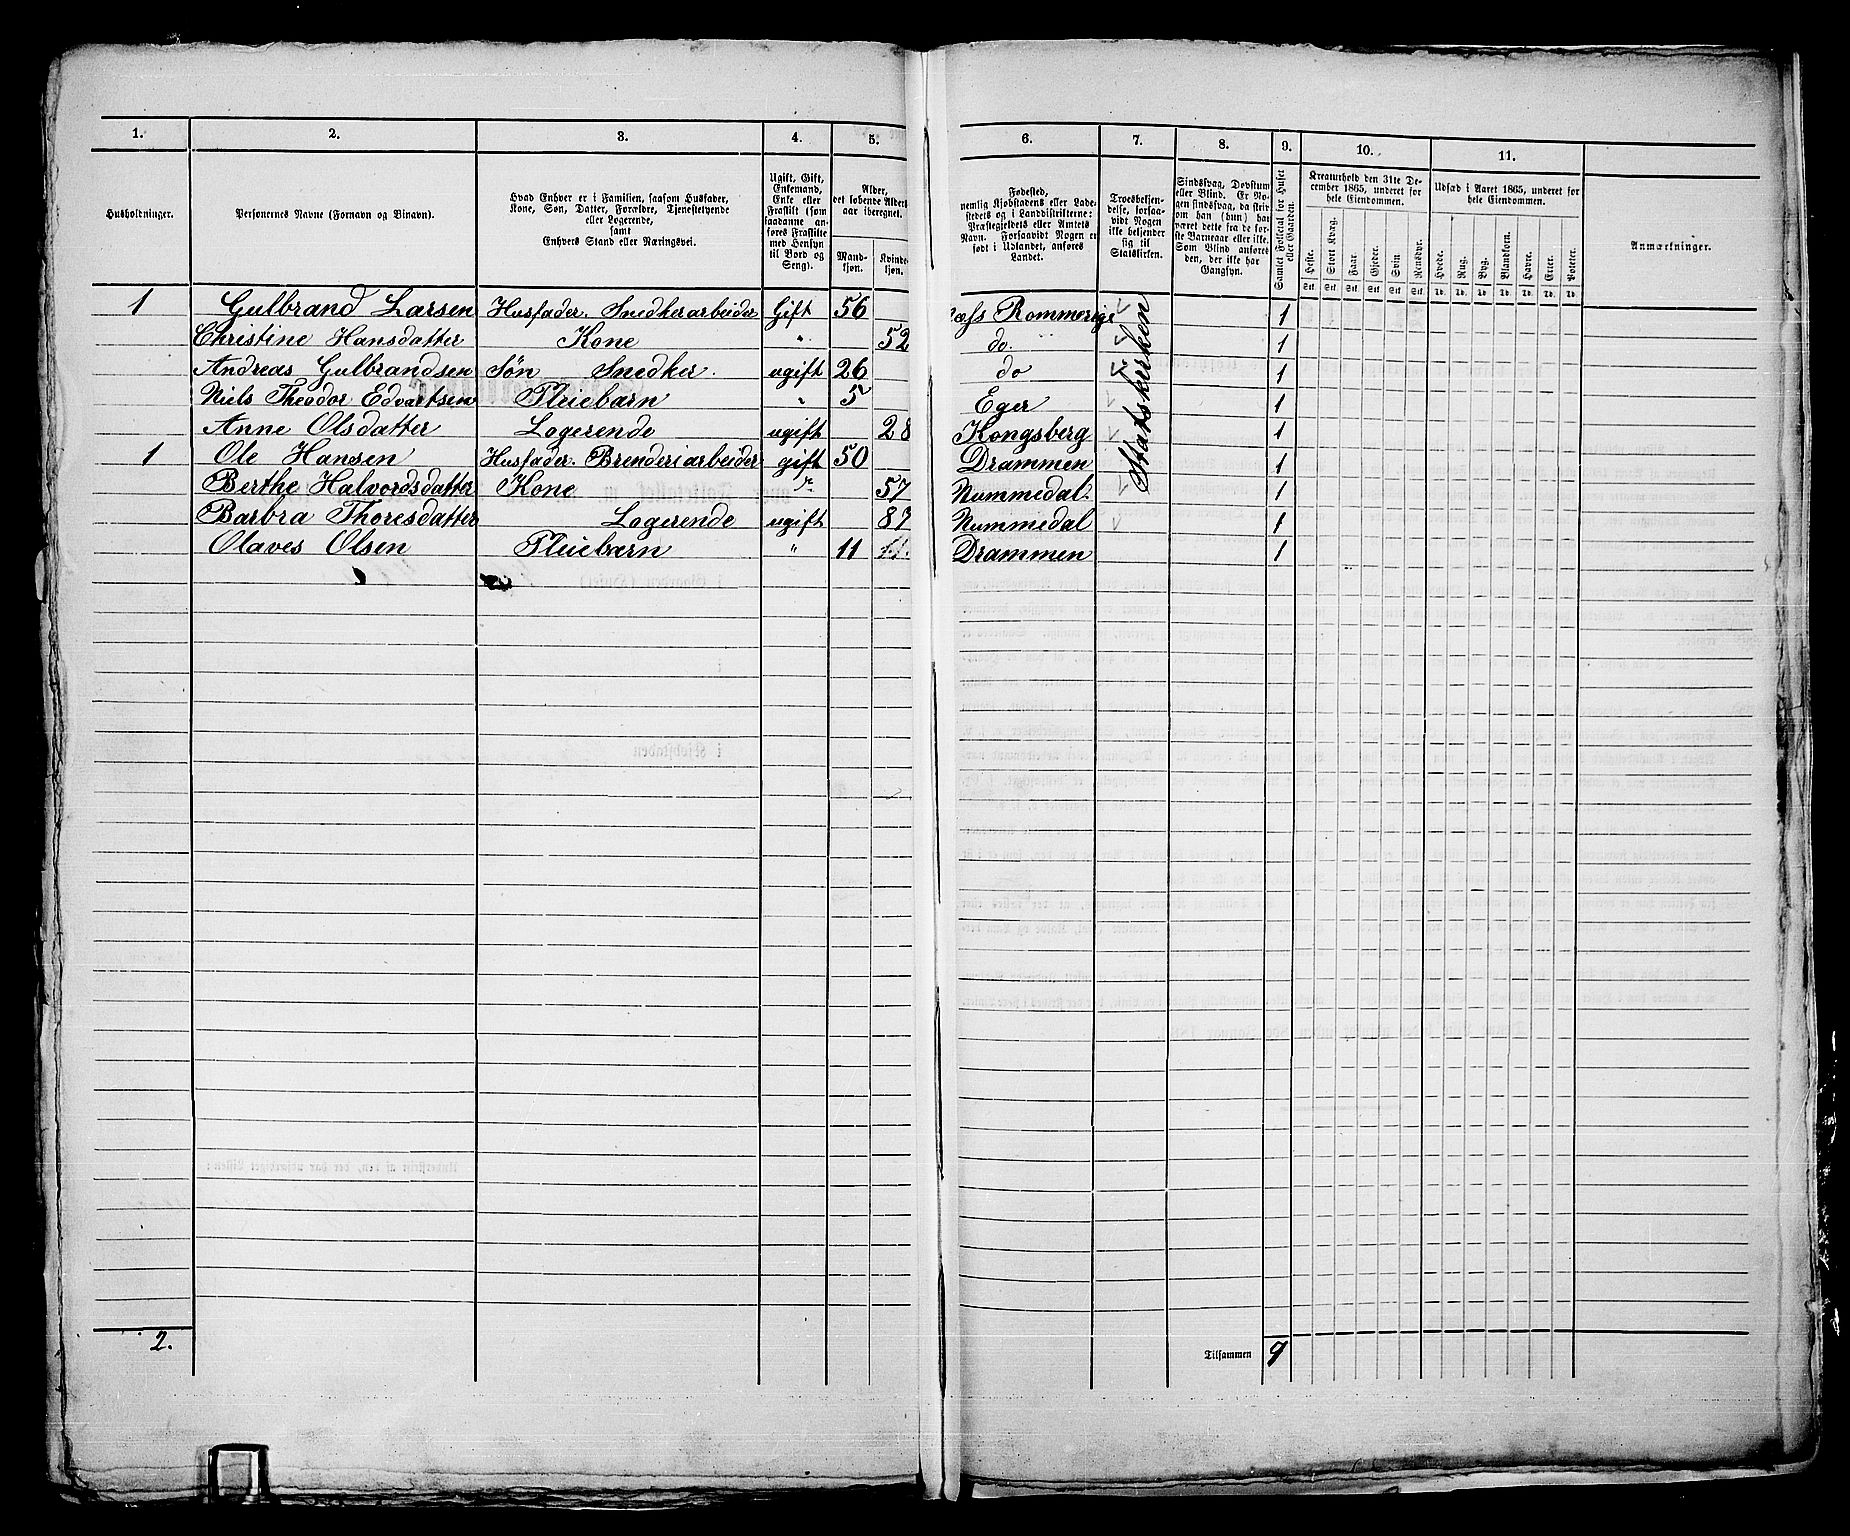 1. 2. 3. 4. 5. 6. 7. 8. 9. 10. 11.
Husholdninger.
Personernes Navne (Fornavn og Binavn).
Hvad Enhver er i Familien, saasom Husfader,
Kone, Søn, Datter, Forældre, Tjenestetyende
eller Logerende,
samt
Enhvers Stand eller Næringsvei.
Ugift, Gift,
Enkemand,
Enke eller
Fraskilt (som
saadanne an-
føres Fraskilte
med Hensyn
til Bord og
Seng).
Alder,
det løbende Alders-
aar iberegnet.
Mand-
kjøn.
Kvinde-
kjøn.
Fødested,
nemlig Kjøbstadens eller Lade-
stedets og i Landdistrikterne:
Præstegjeldets eller Amtets
Navn. Forsaavidt Nogen er
født i Udlandet, anføres
Landet.
Troesbekjen-
delse, forsaa-
vidt Nogen
ikke bekjender
sig til
Statskirken.
Sindssvag, Døvstum
eller Blind. Er No-
gen sindssvag, da skri-
ves om han (hun) har
været dette fra de før-
ste Barneaar eller ikke.
Som Blind anføres
den, der ikke har
Gangsyn.
Samlet Folketal for Huset
eller Gaarden.
Kreaturhold den 31te De-
cember 1865, underet for
hele Eiendommen.
Heste. Stort Kvæg. Faar. Gjeder. Svin Rensdyr.
Stk. Stk. Stk. Stk. Stk. Stk.
Udsæd i Aaret 1865, underet for
hele Eiendommen.
Hvede. Rug. Byg. Blandkorn. Havre. Erter. Poteter.
Td. Td. Td. Td. Td. Td. Td.
Anmærkninger.
1 Gulbrand Larsen Husfader. Snedkerarbeider Gift 56 Næss Rommerige 1
Christine Hansdatter Kone " 52 do. 1
Andreas Gulbrandsen Søn Snedker. ugift 26 do 1
Niels Theodor Edvartsen Pleiebarn " 5 Eger 1
Anne Olsdatter Logerende ugift 28 Kongsberg 1
1 Ole Hansen Husfader. Brenderiarbeider gift 50 Drammen 1
Berthe Halvordsdatter Kone " 57 Nummedal. 1
Barbra Thoresdatter Logerende ugift 87 Nummedal 1
Olaves Olsen Pleiebarn " 11 11. Drammen 1
Statskirken
2.
Tilsammen 9